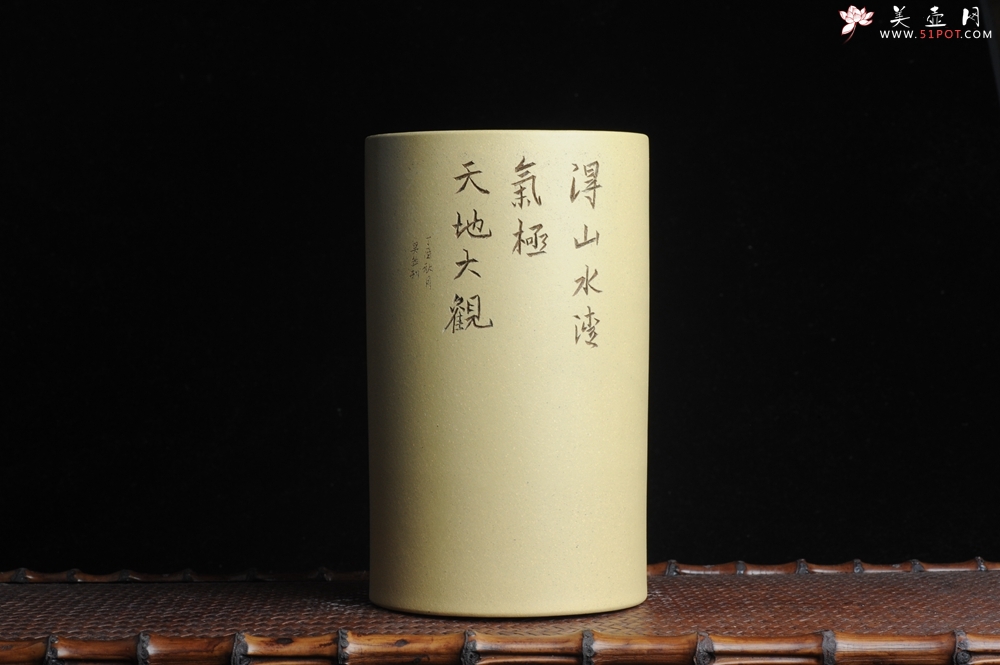 美壶网
WWW.51POT.COM
得山水清
氣極
天地大觀
秋月